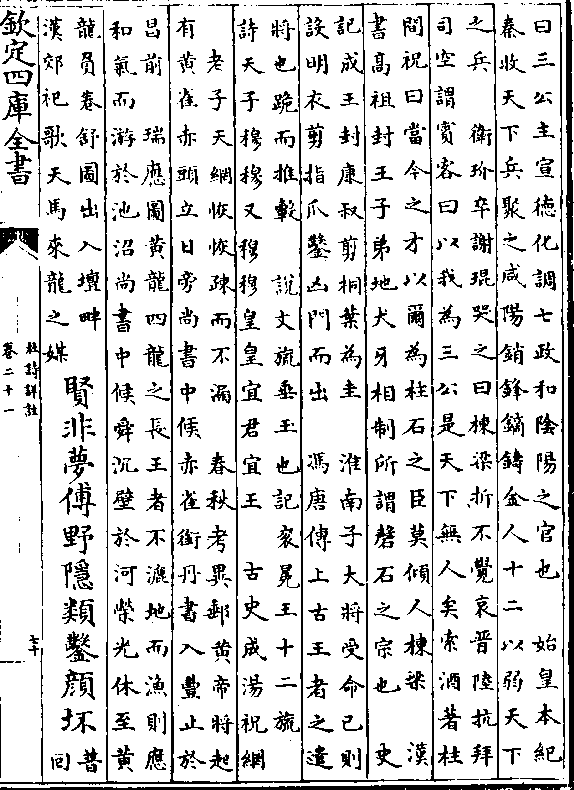 曰三公主宣德化調七政和陰陽之官也　始皇本紀
秦收天下兵聚之咸陽銷鋒鏑鑄金人十二以弱天下
之兵　衛玠卒謝琨哭之曰棟梁折不覺哀晉陸抗拜
司空謂賓客曰以我為三公是天下無人矣索酒著柱
間祝曰當今之才以爾為柱石之臣莫傾人棟梁　漢
書高祖封王子弟地犬牙相制所謂磬石之宗也　史
記成王封康叔剪桐葉為圭　淮南子大將受命已則
設明衣剪指爪鑿凶門而出　馮唐傳上古王者之遣
將也跪而推轂　說文旒垂玉也記衮冕王十二旒
詩天子穆穆又穆穆皇皇宜君宜王　古史成湯祝網
老子天網恢恢疎而不漏　春秋考異郵黄帝將起
有黄雀赤頭立日旁尚書中候赤雀銜丹書入豐止於
昌前　瑞應圖黄龍四龍之長王者不漉地而漁則應
和氣而游於池沼尚書中候舜沉璧於河榮光休至黄
龍員卷舒圖出入壇畔
漢郊祀歌天馬來龍之媒
賢非夢傅野隱類鑿顔坏
昔
回
欽定四庫全書
杜詩詳註
卷二十一
七十